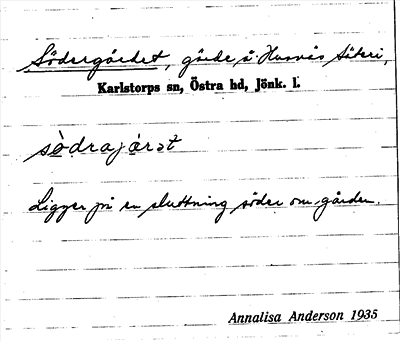 Södergärdet, gärde å Husnäs Säteri,
Karlstorps sn, Östra hd, Jönk. l.
sö̀drajæ̀rət²
Ligger på en sluttning söder om gården.
Annalisa Anderson 1935